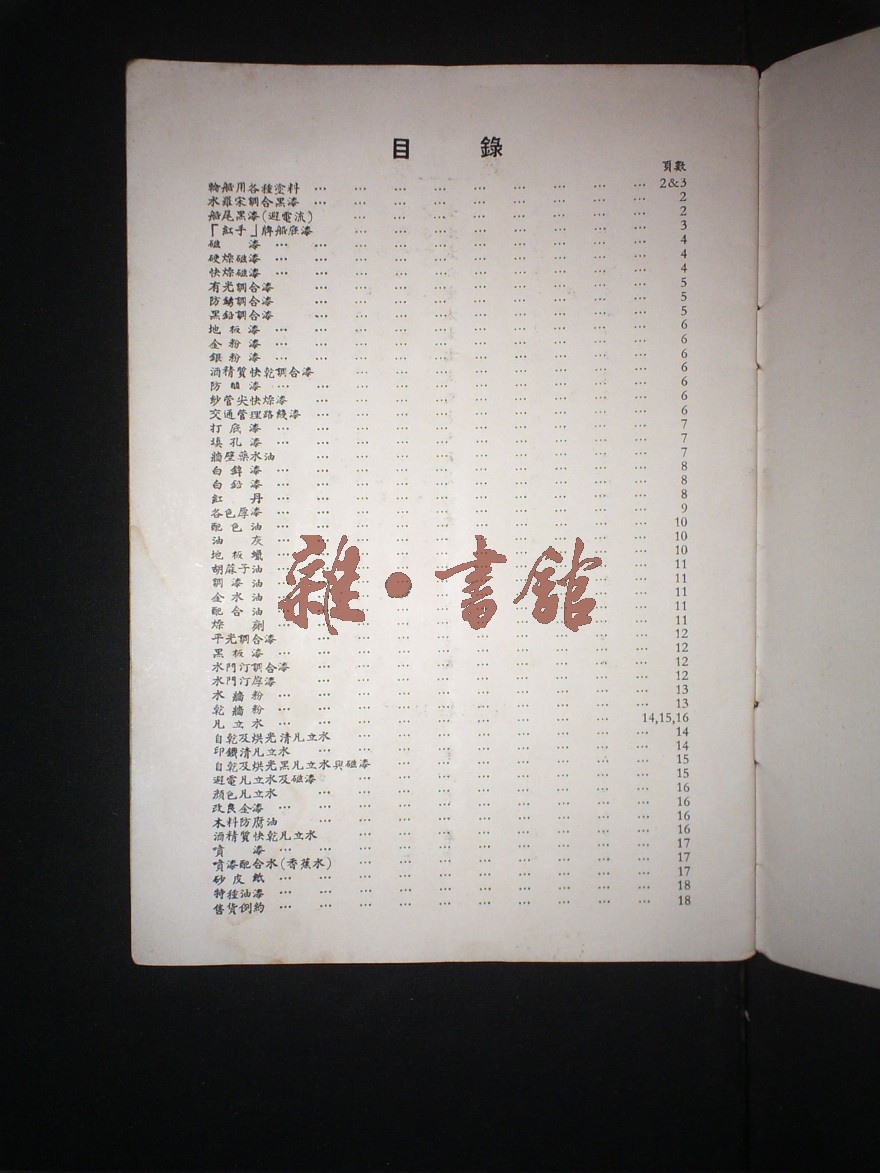 目 錄
頁數
輪船用各種塗料 … … … … … … … … … 2&3
水羅宋調合黑漆 … … … … … … … … … 2
船尾黑漆(避電流) … … … … … … … … 2
「紅手」牌船底漆 … … … … … … … … 3
磁 漆 … … … … … … … … … … 4
硬燥磁漆 … … … … … … … … … … 4
快燥磁漆 … … … … … … … … … … 4
有光調合漆 … … … … … … … … … 5
防銹調合漆 … … … … … … … … … 5
黑鉛調合漆 … … … … … … … … … 5
地板漆 … … … … … … … … … … 6
金粉漆 … … … … … … … … … … 6
銀粉漆 … … … … … … … … … … 6
酒精質快乾調合漆 … … … … … … … … 6
防 漆 … … … … … … … … … … 6
紗管尖快燥漆 … … … … … … … … … 6
交通管理路綫漆 … … … … … … … … … 6
打底漆 … … … … … … … … … … 7
填孔漆 … … … … … … … … … … 7
牆壁藥水油 … … … … … … … … … 7
白鋅漆 … … … … … … … … … … 8
白鉛漆 … … … … … … … … … … 8
紅 丹 … … … … … … … … … … 8
各色厚漆 … … … … … … … … … … 9
配色油 … … … … … … … … … … 10
油 灰 … … … … … … … … … … 10
地板蠟 … … … … … … … … … … 10
胡蔴子油 … … … … … … … … … … 11
調漆油 … … … … … … … … … … 11
金水油 … … … … … … … … … … 11
配合油 … … … … … … … … … … 11
燥 劑 … … … … … … … … … … 11
平光調合漆 … … … … … … … … … 12
黑板漆 … … … … … … … … … … 12
水門汀調合漆 … … … … … … … … … 12
水門汀厚漆 … … … … … … … … … 12
水牆粉 … … … … … … … … … … 13
乾牆粉 … … … … … … … … … … 13
凡立水 … … … … … … … … … 14,15,16
自乾及烘光清凡立水 … … … … … … … … 14
印鐵清凡立水 … … … … … … … … … 14
自乾及烘光黑凡立水與磁漆 … … … … … … … 15
避電凡立水及磁漆 … … … … … … … … 15
顏色凡立水 … … … … … … … … … 16
改良金漆 … … … … … … … … … … 16
木料防腐油 … … … … … … … … … 16
酒精質快乾凡立水 … … … … … … … … 16
噴 漆 … … … … … … … … … … 17
噴漆配合水(香蕉水) … … … … … … … … 17
砂皮紙 … … … … … … … … … … 17
特種油漆 … … … … … … … … … … 18
售貨例約 … … … … … … … … … … 18
雜·書館